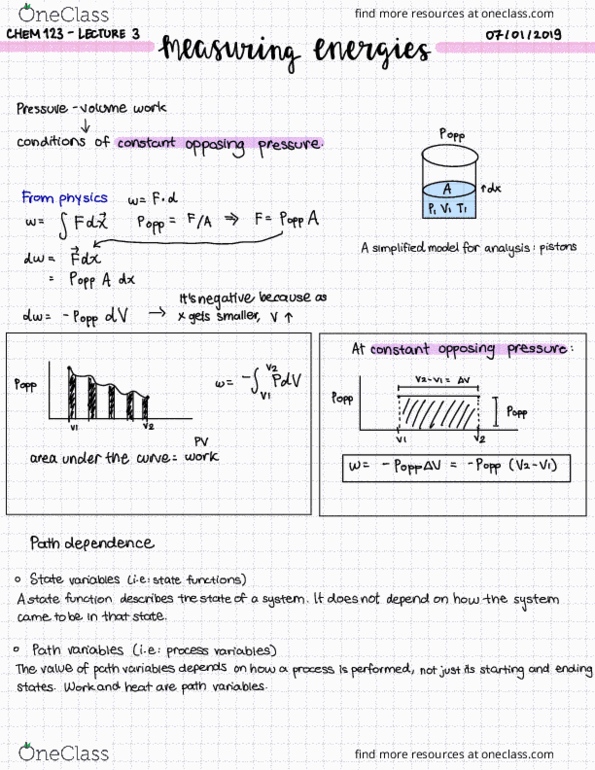 OneClass
find more resources at oneclass.com
CHEM 123 - LECTURE 3
measuring energies
07/01/2019
Pressure - volume work
↓
conditions of constant opposing pressure.
Popp
A
↑dx
P₁ V₁ T₁
A simplified model for analysis: pistons
From physics w = F·d
w = ∫ F dx⃗ Popp = F/A ⇒ F = Popp A
dw = F⃗dx
= Popp A dx
dw = - Popp dV → It's negative because as
x gets smaller, V ↑
Popp
V1
V2
w = -∫ V2 V1 PdV
PV
area under the curve = work
At constant opposing pressure:
V2-V1 = ΔV
Popp
Popp
V1
V2
W = - Popp ΔV = - Popp (V2-V1)
Path dependence
o State variables (i.e: state functions)
A state function describes the state of a system. It does not depend on how the system
came to be in that state.
o Path variables (i.e: process variables)
The value of path variables depends on how a process is performed, not just its starting and ending
states. Work and heat are path variables.
OneClass
find more resources at oneclass.com